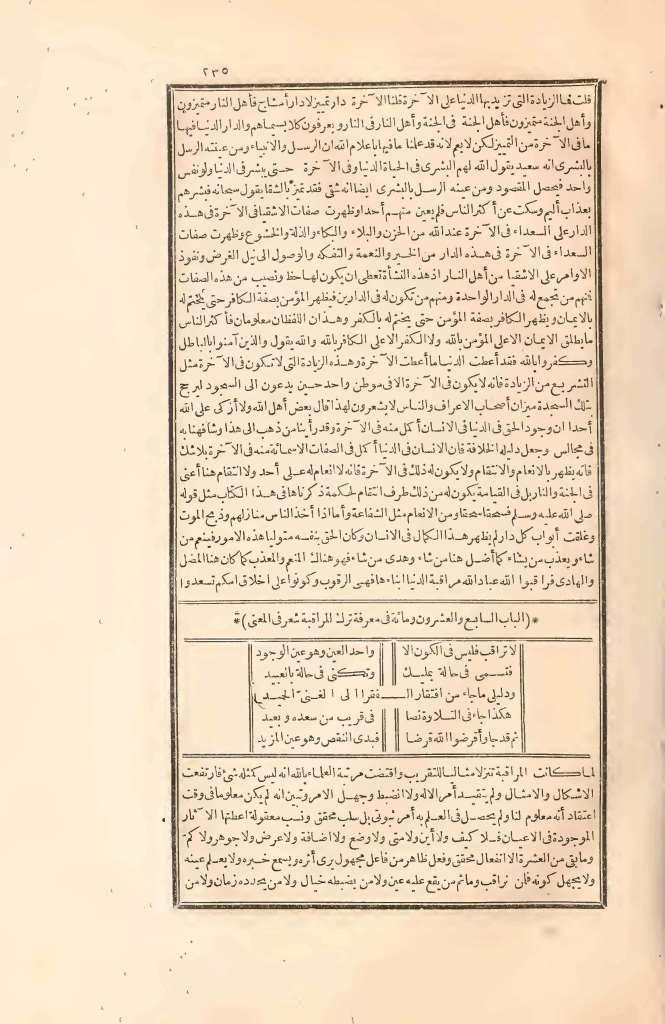 ٢٣٥
قلت فما الزيادة التى تزيد بها الدنيا على الآخرة قلنا الآخرة دار تمييز لا دار أمشاج فأهل النار متميزون
وأهل الجنة متميزون فأهل الجنة فى الجنة وأهل النار فى النار ويعرفون كلا بسيماهم والدار الدنيا فيها
ما فى الآخرة من التمييز لكن لا يعم لانه قد علمنا ما فيها باعلام الله ان الرسل والانبياء ومن عينته الرسل
بالبشرى انه سعيد يقول الله لهم البشرى فى الحياة الدنيا وفى الآخرة حتى يبشر فى الدنيا ولو نفس
واحد فيحصل المقصود ومن عينه الرسل بالبشرى ايضا انه شقى فقد تميز بالشقا يقول سبحانه فبشرهم
بعذاب أليم وسكت عن أكثر الناس فلم يعين منهم أحدا وظهرت صفات الاشقيا فى الآخرة فى هذه
الدار على السعداء فى الآخرة عند الله من الحزن والبلاء والبكاء والذلة والخشوع وظهرت صفات
السعداء فى الآخرة فى هذه الدار من الخير والنعمة والتفكه والوصول الى نيل الغرض ونفوذ
الاوامر على الاشقيا من أهل النار اذ هذه النشأة تعطى ان يكون لها حظ ونصيب من هذه الصفات
فمنهم من تجمع له فى الدار الواحدة ومنهم من تكون له فى الدارين فيظهر المؤمن بصفة الكافر حتى يختم له
بالايمان ويظهر الكافر بصفة المؤمن حتى يختم له بالكفر وهذان اللفظان معلومان فأكثر الناس
ما يطلق الايمان الا على المؤمن بالله ولا الكفر الا على الكافر بالله والله يقول والذين آمنوا بالباطل
وكفروا بالله فقد أعطت الدنيا ما أعطت الآخرة وهذه الزيادة التى لا تكون فى الآخرة مثل
التشريع من الزيادة فانه لا يكون فى الآخرة الا فى موطن واحد حين يدعون الى السجود ليرجح
بتلك السجدة ميزان أصحاب الاعراف والناس لا يشعرون لهذا قال بعض أهل الله ولا أزكى على الله
أحدا ان وجود الحق فى الدنيا فى الانسان أكمل منه فى الآخرة وقد رأينا من ذهب الى هذا وشافهنا به
فى مجالس وجعل دليله الخلافة فان الانسان فى الدنيا أكمل فى الصفات الاسمائية منه فى الآخرة بلا شك
فانه يظهر بالانعام والانتقام ولا يكون له ذلك فى الآخرة فانه لا انعام له على أحد ولا انتقام هنا أعنى
فى الجنة والنار بل فى القيامة يكون له من ذلك طرف انتقام لحكمة ذكرناها فى هذا الكتاب مثل قوله
صلى الله عليه وسلم فسحقا سحقا ومن الانعام مثل الشفاعة وأما اذا أخذ الناس منازلهم وذبح الموت
وغلقت أبواب كل دار لم يظهر هذا الكمال فى الانسان وكان الحق بنفسه متوليا هذه الامور فينعم من
شاء ويعذب من يشاء كما أضل هنا من شاء وهدى من شاء فهو هنالك المنعم والمعذب كما كان هنا المضل
والهادى فراقبوا الله عباد الله مراقبة الدنيا ابناءها فهى الرقوب وكونوا على اخلاق امكم تسعدوا
* (الباب السابع والعشرون ومائة فى معرفة ترك المراقبة شعر فى المعنى) *
لا تراقب فليس فى الكون الا واحد العين وهو عين الوجود
فتسمى فى حالة بمليك وتكنى فى حالة بالعبيد
ودليلى ما جاء من افتقار الفقرا الى الغنى الحميد
هكذا جاء فى التلاوة نصا فى قريب من سعده وبعيد
ثم قد جا وأقرضوا الله قرضا فبدى النقص وهو عين المزيد
لما كانت المراقبة تنزلا مثاليا للتقريب واقتضت مرتبة العلماء بالله انه ليس كمثله شئ فارتفعت
الاشكال والامثال ولم يتقيد أمر الاله ولا انضبط وجهل الامر وتبين انه لم يكن معلوما فى وقت
اعتقاد أنه معلوم لنا ولم يحصل فى العلم به أمر ثبوتى بل سلب محقق ونسب معقولة اعطتها الآثار
الموجودة فى الاعيان فلا كيف ولا أين ولا متى ولا وضع ولا اضافة ولا عرض ولا جوهر ولا كم
وما بقى من العشرة الا انفعال محقق وفعل ظاهر من فاعل مجهول يرى أثره ويسمع خبره ولا يعلم عينه
ولا يجهل كونه فلمن نراقب وما ثم من يقع عليه عين ولا من يضبطه خيال ولا من يحدده زمان ولا من